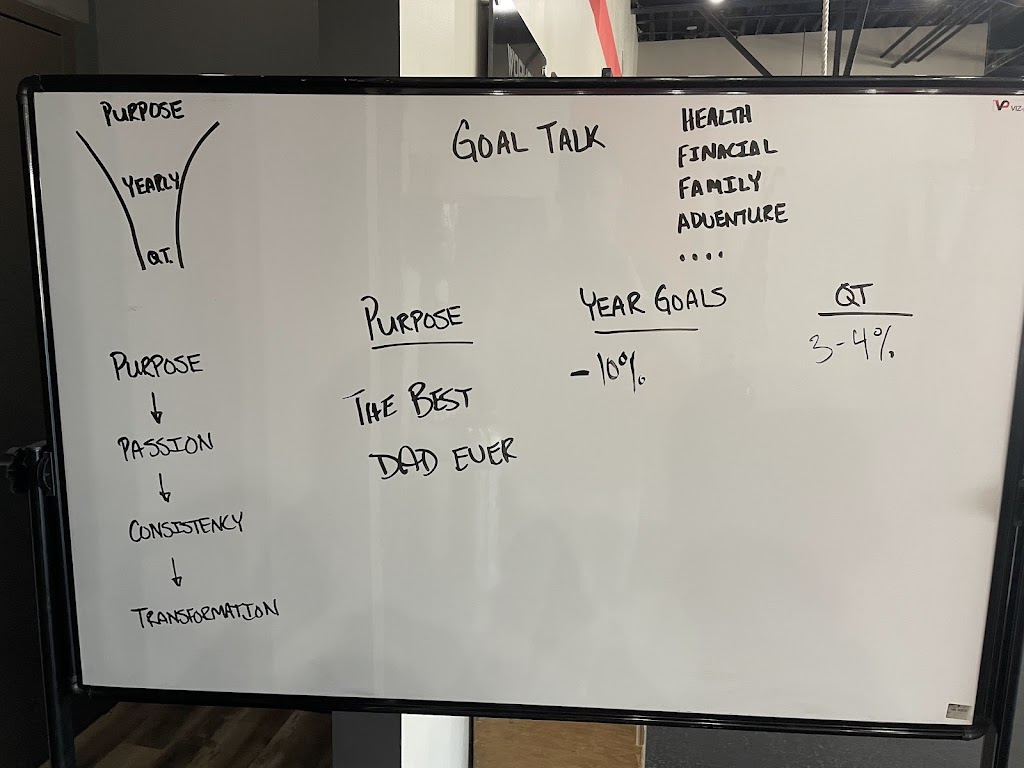 PURPOSE
YEARLY
QT.
GOAL TALK
HEALTH
FINACIAL
FAMILY
ADVENTURE
....
PURPOSE
↓
PASSION
↓
CONSISTENCY
↓
TRANSFORMATION
PURPOSE
THE BEST
DAD EVER
YEAR GOALS
-10%
QT
3-4%